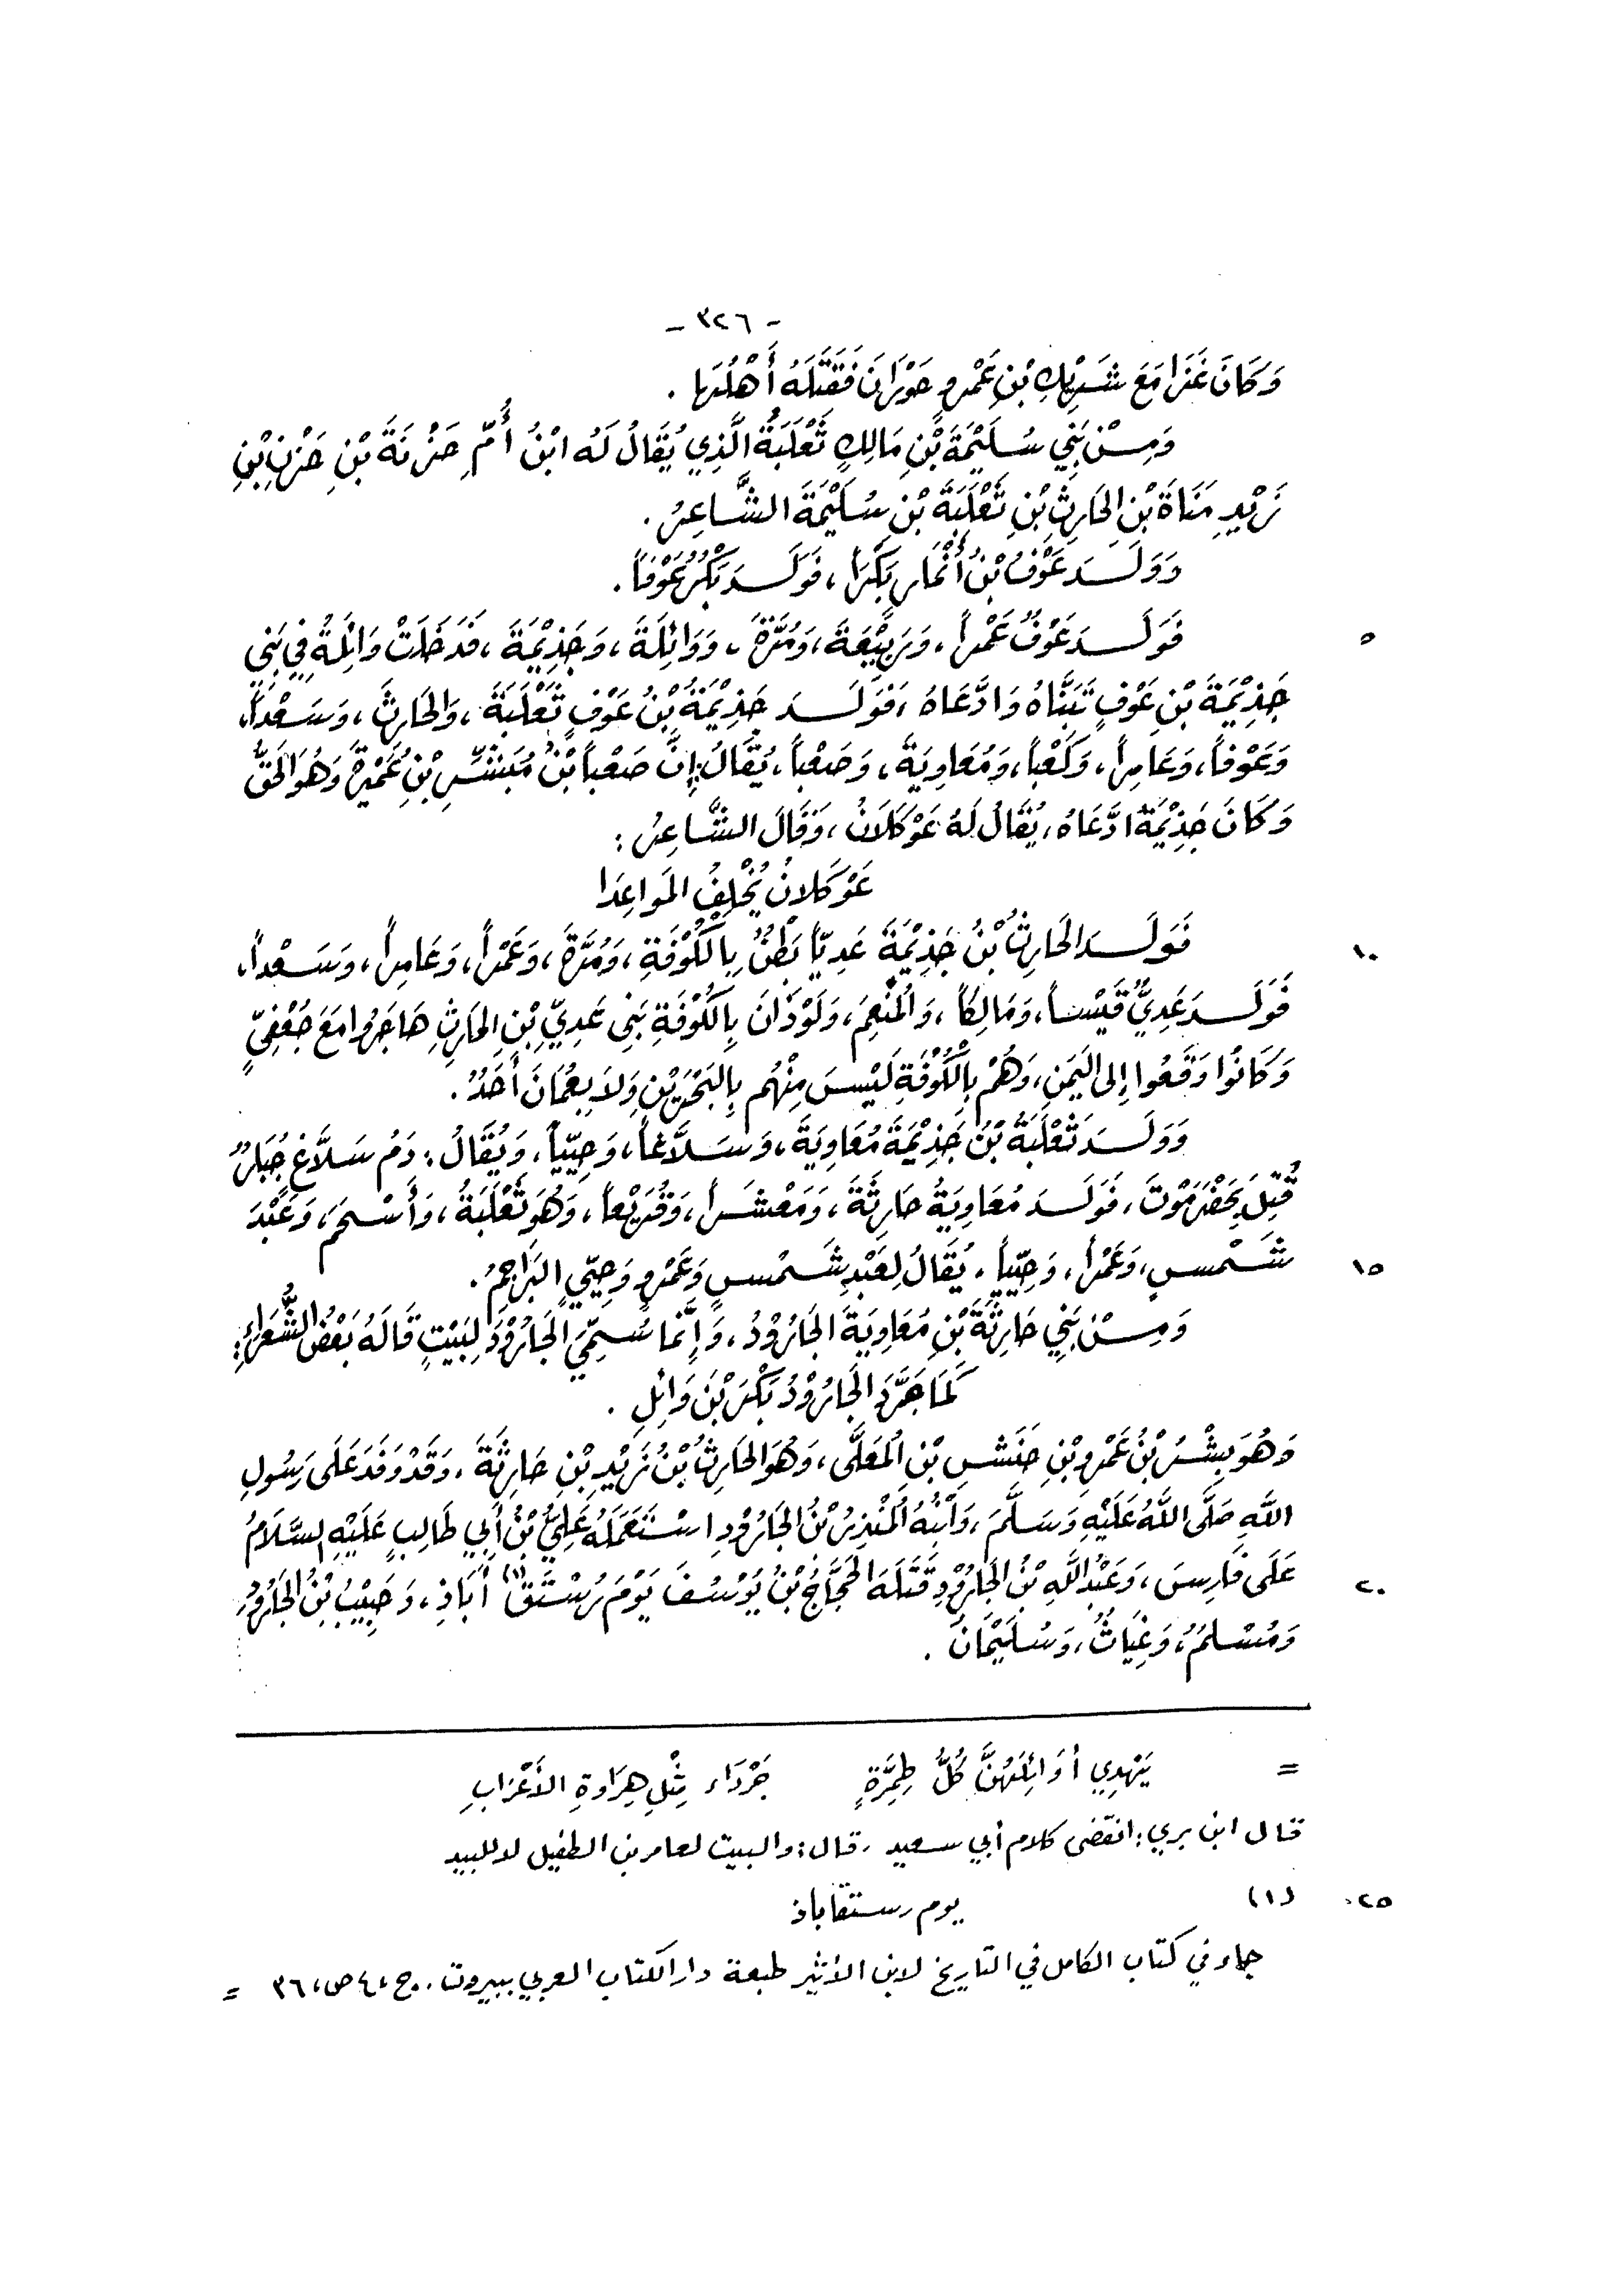 - ٣٢٦ -
وَكَانَ غَزَا مَعَ شَرِيْكِ بْنِ عَمْرٍو حَوْرَانَ فَقَتَلَهُ أَهْلُهَا .
وَمِنْ بَنِي سُلَيْمَةَ بْنِ مَالِكٍ ثَعْلَبَةُ الَّذِي يُقَالُ لَهُ ابْنُ أُمِّ حَزْنَةَ بْنِ حَزْنِ بْنِ
زَيْدِ مَنَاةَ بْنِ الحَارِثِ بْنِ ثَعْلَبَةَ بْنِ سُلَيْمَةَ الشَّاعِرُ .
وَوَلَدَ عَوْفُ بْنُ أَنْمَارٍ بَكْرَاً ، فَوَلَدَ بَكْرٌ عَوْفَاً .
٥ فَوَلَدَ عَوْفٌ عَمْراً ، وَرَبِيْعَةَ ، وَمُرَّةَ ، وَوَائِلَةَ ، وَجَذِيْمَةَ ، فَدَخَلَتْ وَائِلَةُ فِي بَنِي
جَذِيْمَةَ بْنِ عَوْفٍ تَبَنَّاهُ وَادَّعَاهُ ، فَوَلَدَ جَذِيْمَةُ بْنُ عَوْفٍ ثَعْلَبَةَ ، وَالحَارِثَ ، وَسَعْداً ،
وَعَوْفاً ، وَعَامِراً ، وَكَعْباً ، وَمُعَاوِيَةَ ، وَصَعْباً ، يُقَالُ : إِنَّ صَعْباً بْنُ مُبَشِّرِ بْنِ عُمَيْرَةَ وَهُوَ الحَقُّ
وَكَانَ جَذِيْمَةُ ادَّعَاهُ ، يُقَالُ لَهُ عَوْكَلَانُ ، وَقَالَ الشَّاعِرُ :
عَوْكَلانُ يُخْلِفُ المَواعِدَا
١٠ فَوَلَدَ الحَارِثُ بْنُ جَذِيْمَةَ عَدِيّاً بَطْنٌ بِالكُوْفَةِ ، وَمُرَّةَ ، وَعَمْراً ، وَعَامِراً ، وَسَعْداً ،
فَوَلَدَ عَدِيٌّ قَيْساً ، وَمَالِكاً ، وَالمُنْعِمَ ، وَلَوْذَانَ بِالكُوْفَةِ بَنِي عَدِيِّ بْنِ الحَارِثِ هَاجَرُوا مَعَ جُعْفِيٍّ
وَكَانُوا وَقَعُوا إِلى اليَمَنِ ، وَهُمْ بِالكُوْفَةِ لَيْسَ مِنْهُم بِالبَحْرَيْنِ وَلاَ بِعُمَانَ أَحَدٌ .
وَوَلَدَ ثَعْلَبَةُ بْنُ جَذِيْمَةَ مُعَاوِيَةَ ، وَسَلَّاغاً ، وَحِيّياً ، وَيُقَالُ : دَمُ سَلَّاغٍ جُبَارٌ
قُتِلَ بِحَضْرَمَوْتَ ، فَوَلَدَ مُعَاوِيَةُ حَارِثَةَ ، وَمَعْشَراً ، وَقُرَيْعاً ، وَهُوَ ثَعْلَبَةُ ، وَأَسْحَمَ ، وَعَبْدَ
١٥ شَمْسٍ ، وَعَمْراً ، وَحِيّياً ، يُقَالُ لِعَبْدِ شَمْسٍ وَعَمْرٍو وَحِيّيٍ البَرَاجِمُ .
وَمِنْ بَنِي حَارِثَةَ بْنِ مُعَاوِيَةَ الجَارُوْدُ ، وَإِنَّمَا سُمِّيَ الجَارُوْدَ لِبَيْتٍ قَالَهُ بَعْضُ الشُّعَرَاءِ :
كَمَا جَرَّدَ الجَارُوْدُ بَكْرَ بْنَ وَائِلِ .
وَهُوَ بِشْرُ بْنُ عَمْرِو بْنِ حَنَشِ بْنِ المُعَلَّى ، وَهُوَ الحَارِثُ بْنُ زَيْدِ بْنِ حَارِثَةَ ، وَقَدْ وَفَدَ عَلَى رَسُولِ
اللَّهِ صَلَّى اللَّهُ عَلَيْهِ وَسَلَّمَ ، وَابْنُهُ المُنْذِرُ بْنُ الجَارُوْدِ اسْتَعْمَلَهُ عَلِيُّ بْنُ أَبِي طَالِبٍ عَلَيْهِ السَّلَامُ
٢٠ عَلَى فَارِسَ ، وَعَبْدُ اللَّهِ بْنُ الجَارُوْدِ قَتَلَهُ الحَجَّاجُ بْنُ يُوْسُفَ يَوْمَ رُسْتَقَ (١) أَبَاذِ ، وَحَبِيْبُ بْنُ الجَارُوْدِ
وَمُسْلِمٌ ، وَغِيَاثٌ ، وَسُلَيْمَانُ .
= يَهْدِي أَوَائِلَهُنَّ كُلُّ طِمِرَّةٍ جَرْدَاء مِثْلِ هِرَاوَةِ الأَعْزَابِ
قال ابن بري : انقضى كلام أبي سعيد ، قال : والبيت لعامر بن الطفيل لا للبيد
٢٥ (١) يوم رستقاباذ
جاء في كتاب الكامل في التاريخ لابن الأثير طبعة دار الكتاب العربي ببيروت . ج ، ٤ ص ، ٣٦ =